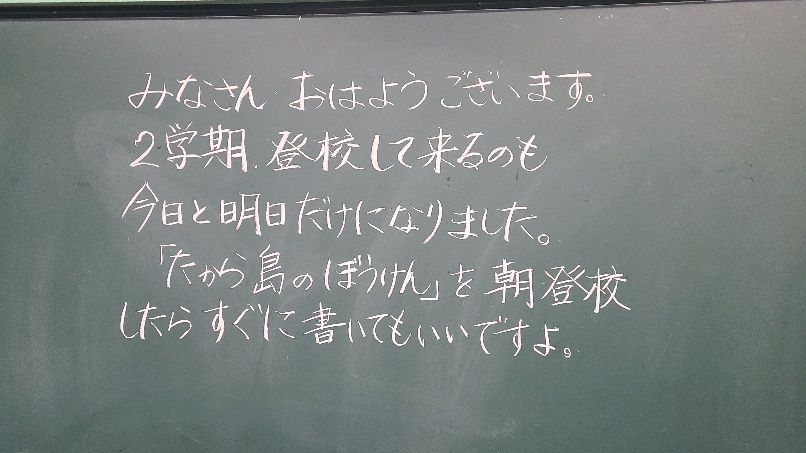 みなさん おはようございます。
2学期、登校して来るのも
今日と明日だけになりました。
「たから島のぼうけん」を朝登校
したらすぐに書いてもいいですよ。